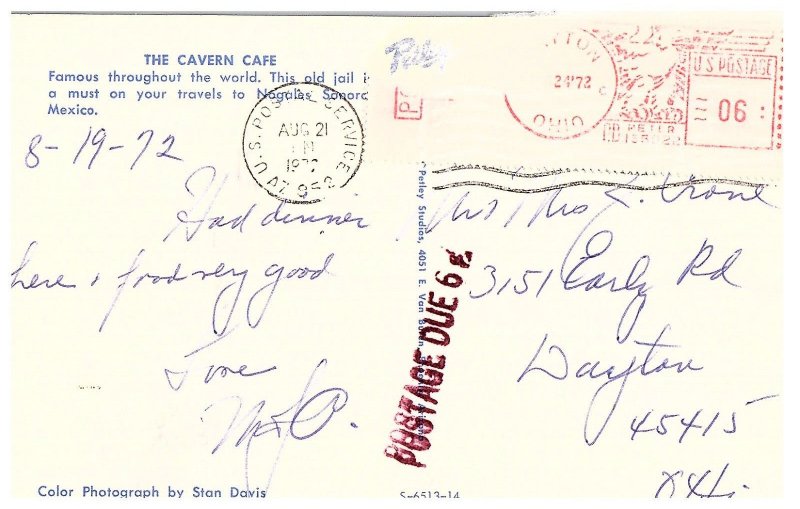 THE CAVERN CAFE
Famous throughout the world. This old jail i
a must on your travels to Nogales Sonora
Mexico.
8-19-72
Had dinner
here & food very good
Love
U.S. POSTAL SERVICE
AUG 21
PM
AZ 852
TON
24'72
OHIO
U.S. POSTAGE
06
P.B. METER
Petley Studios, 4051 E. Van Buren,
POSTAGE DUE 6¢
Mr & Mrs L. Crone
3151 Early Rd
Dayton
45415
Ohio
Color Photograph by Stan Davis
S-6513-14